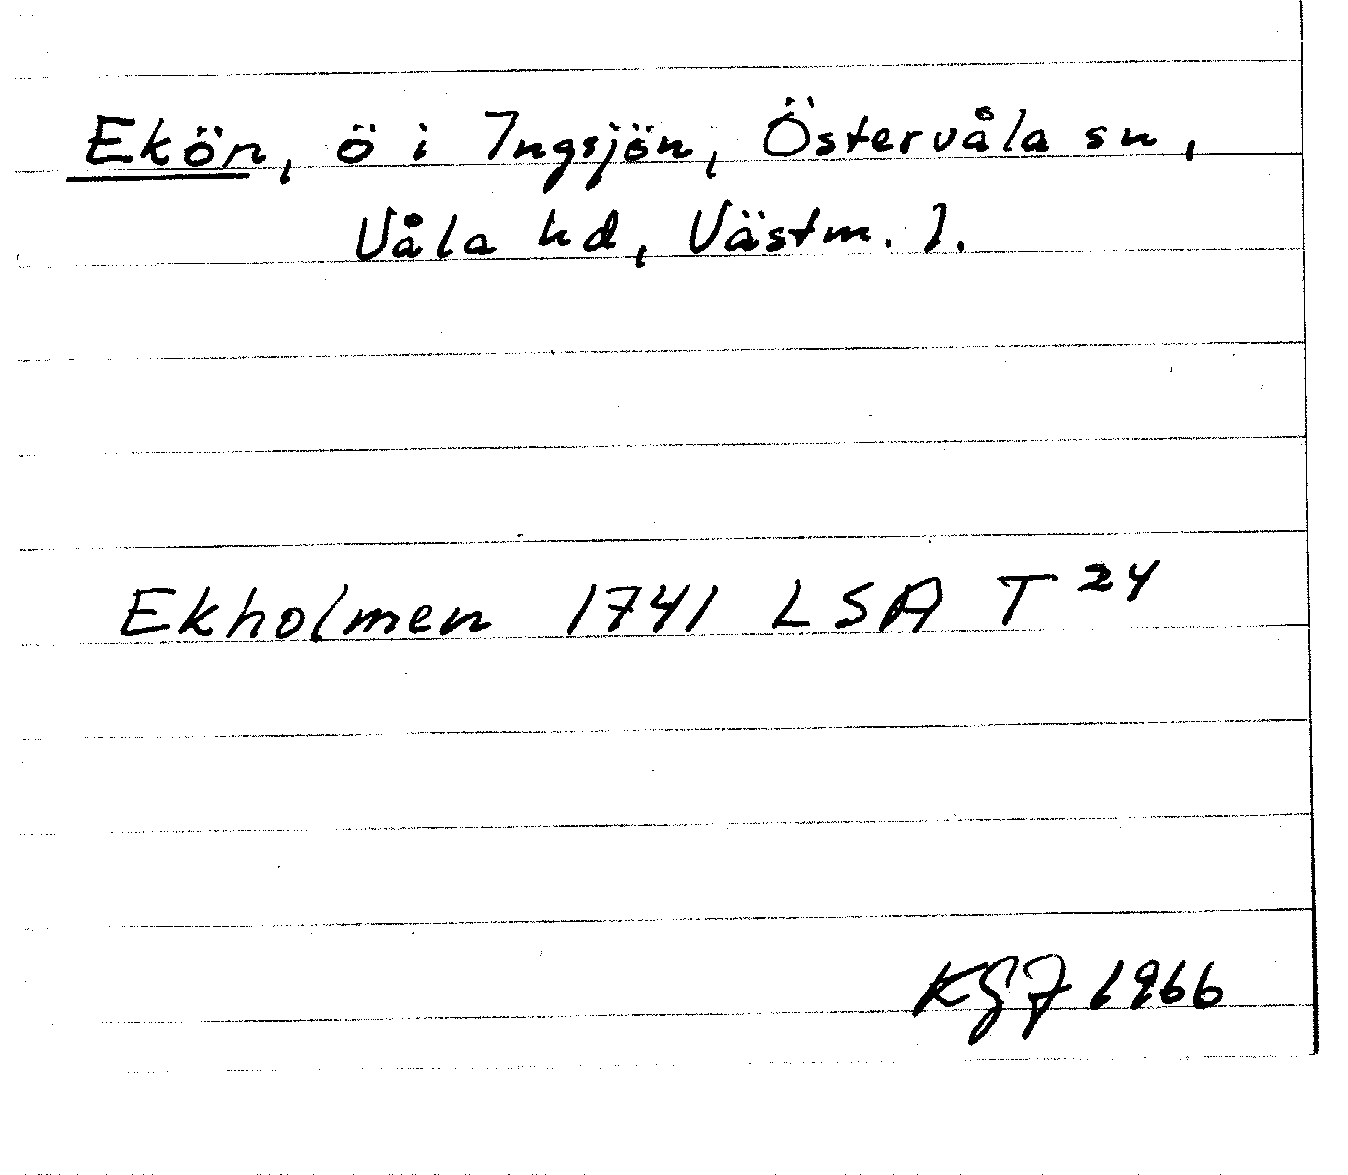 Ekön, ö i Ingsjön, Östervåla sn,
Våla hd, Västm. l.
Ekholmen 1741 LSA T 24
KGJ 1966